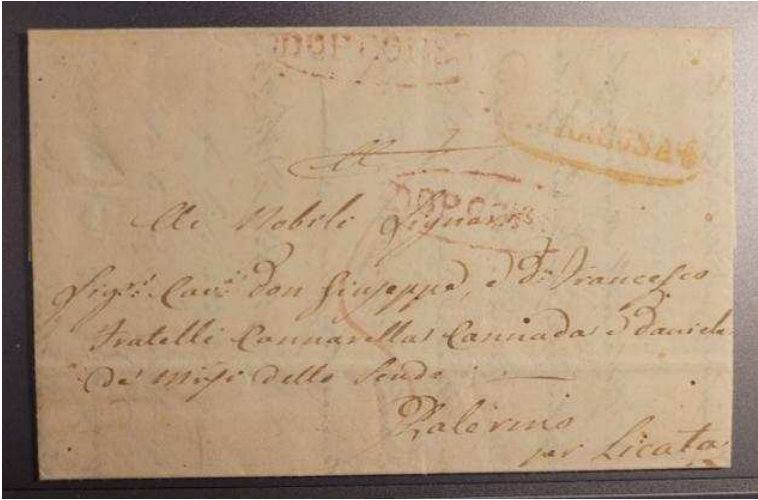 RAGUSA
Ai Nobili Signori
Sig.ri Cav.e Don Giuseppe, e Dn Francesco
Fratelli Cannarella Cannada e Daniele
de' Mrsi dello Scudo
Palermo
per Licata